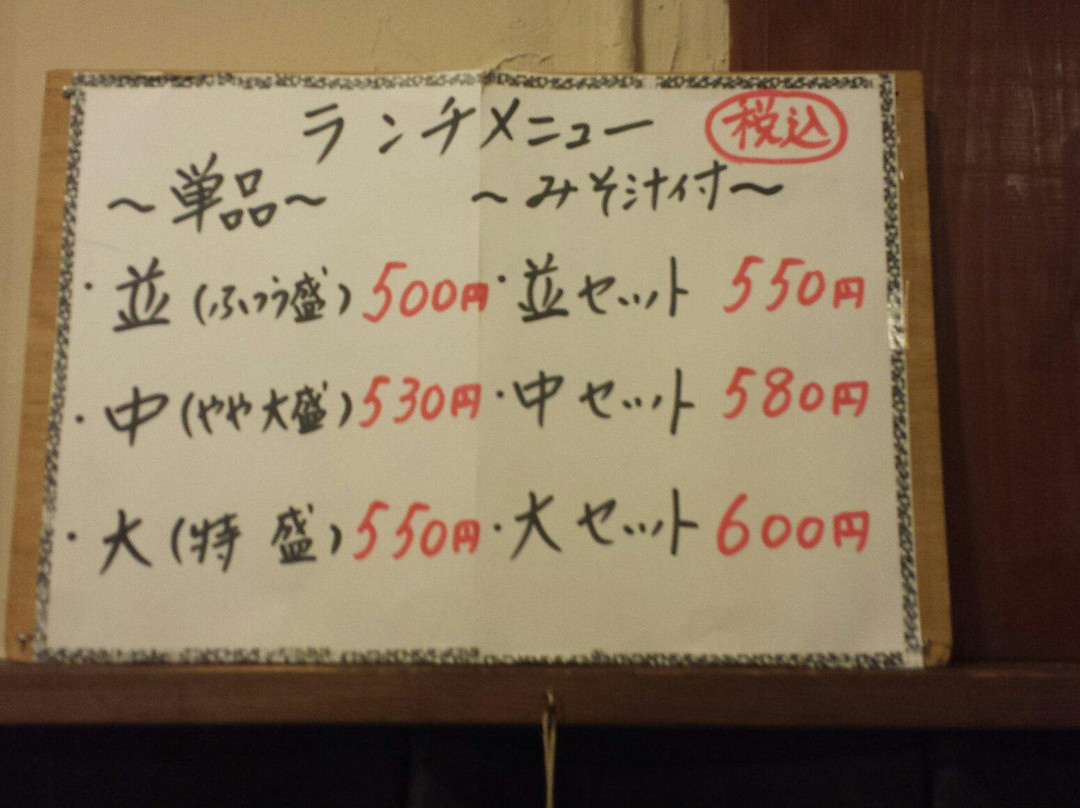 ランチメニュー 税込
～単品～ ～みそ汁付～
・並(ふつう盛)500円 ・並セット 550円
・中(やや大盛)530円 ・中セット 580円
・大(特盛)550円 ・大セット 600円